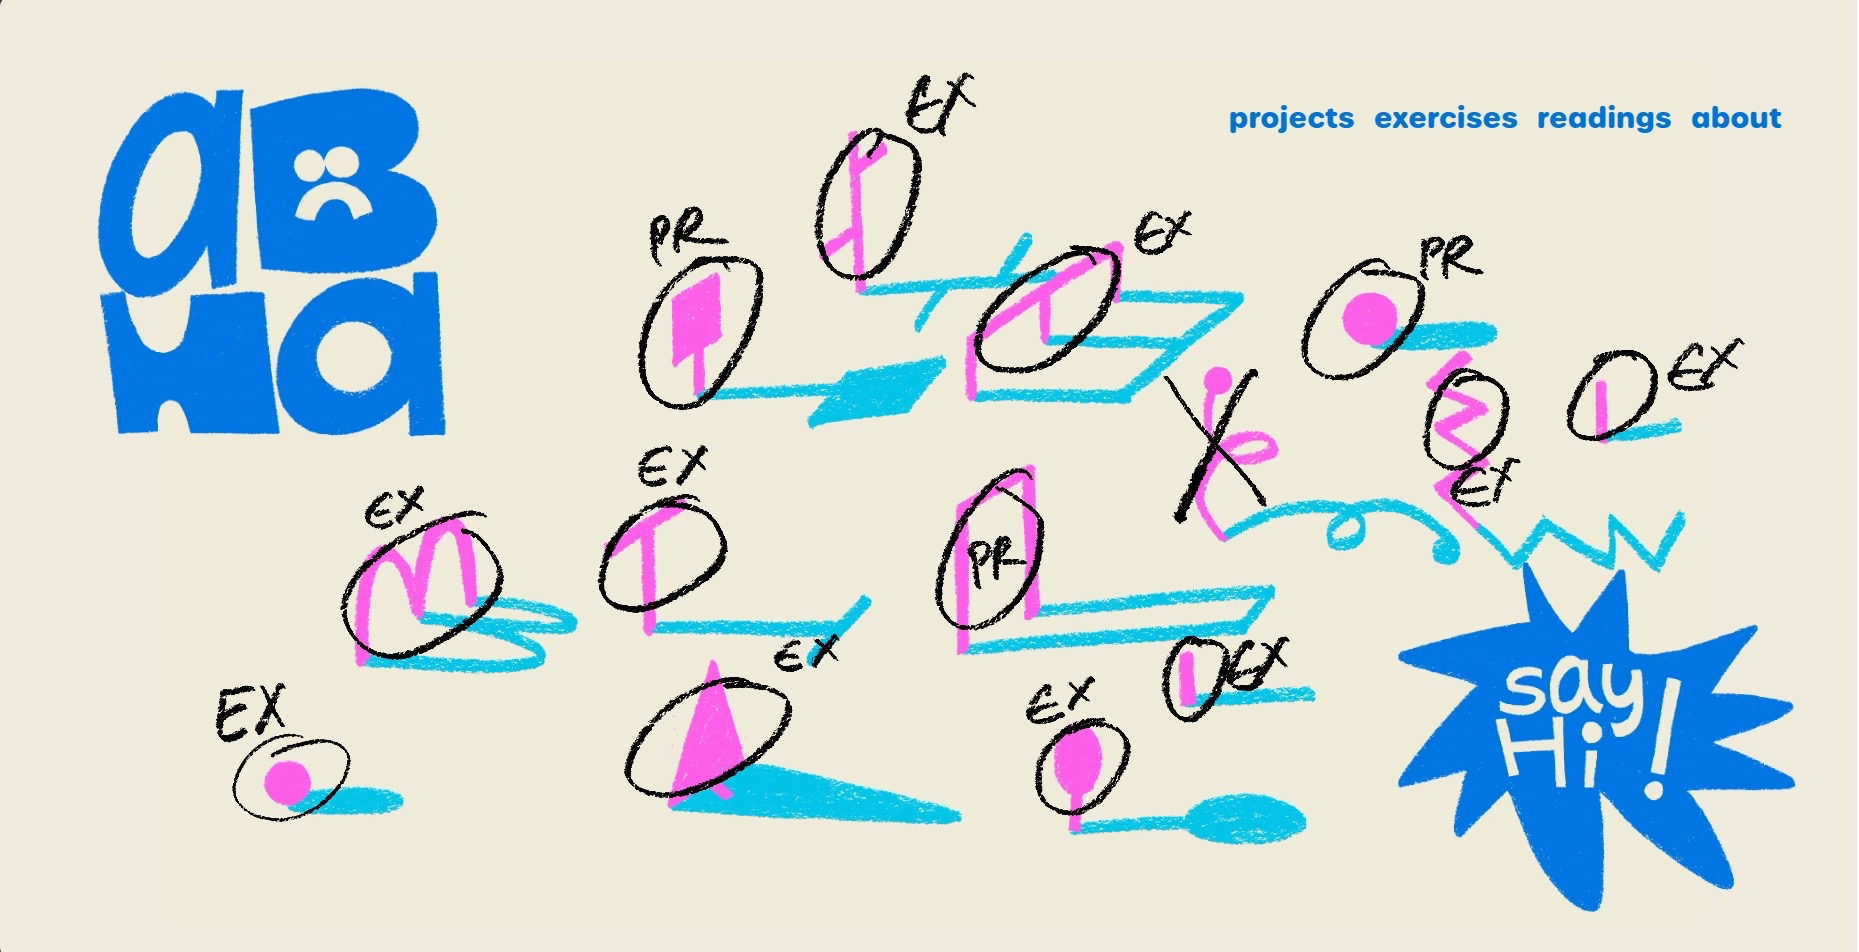 aB
Ha
projects exercises readings about
EX
PR
EX
PR
EX
EX
EX
EX
PR
EX
EX
EX
EX
say
Hi!